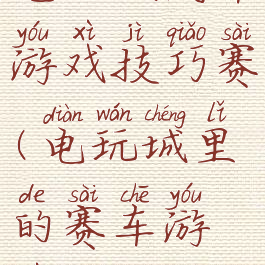 yóu xì jì qiǎo sài
游戏技巧赛
diàn wán chéng lǐ
(电玩城里
de sài chē yóu
的赛车游